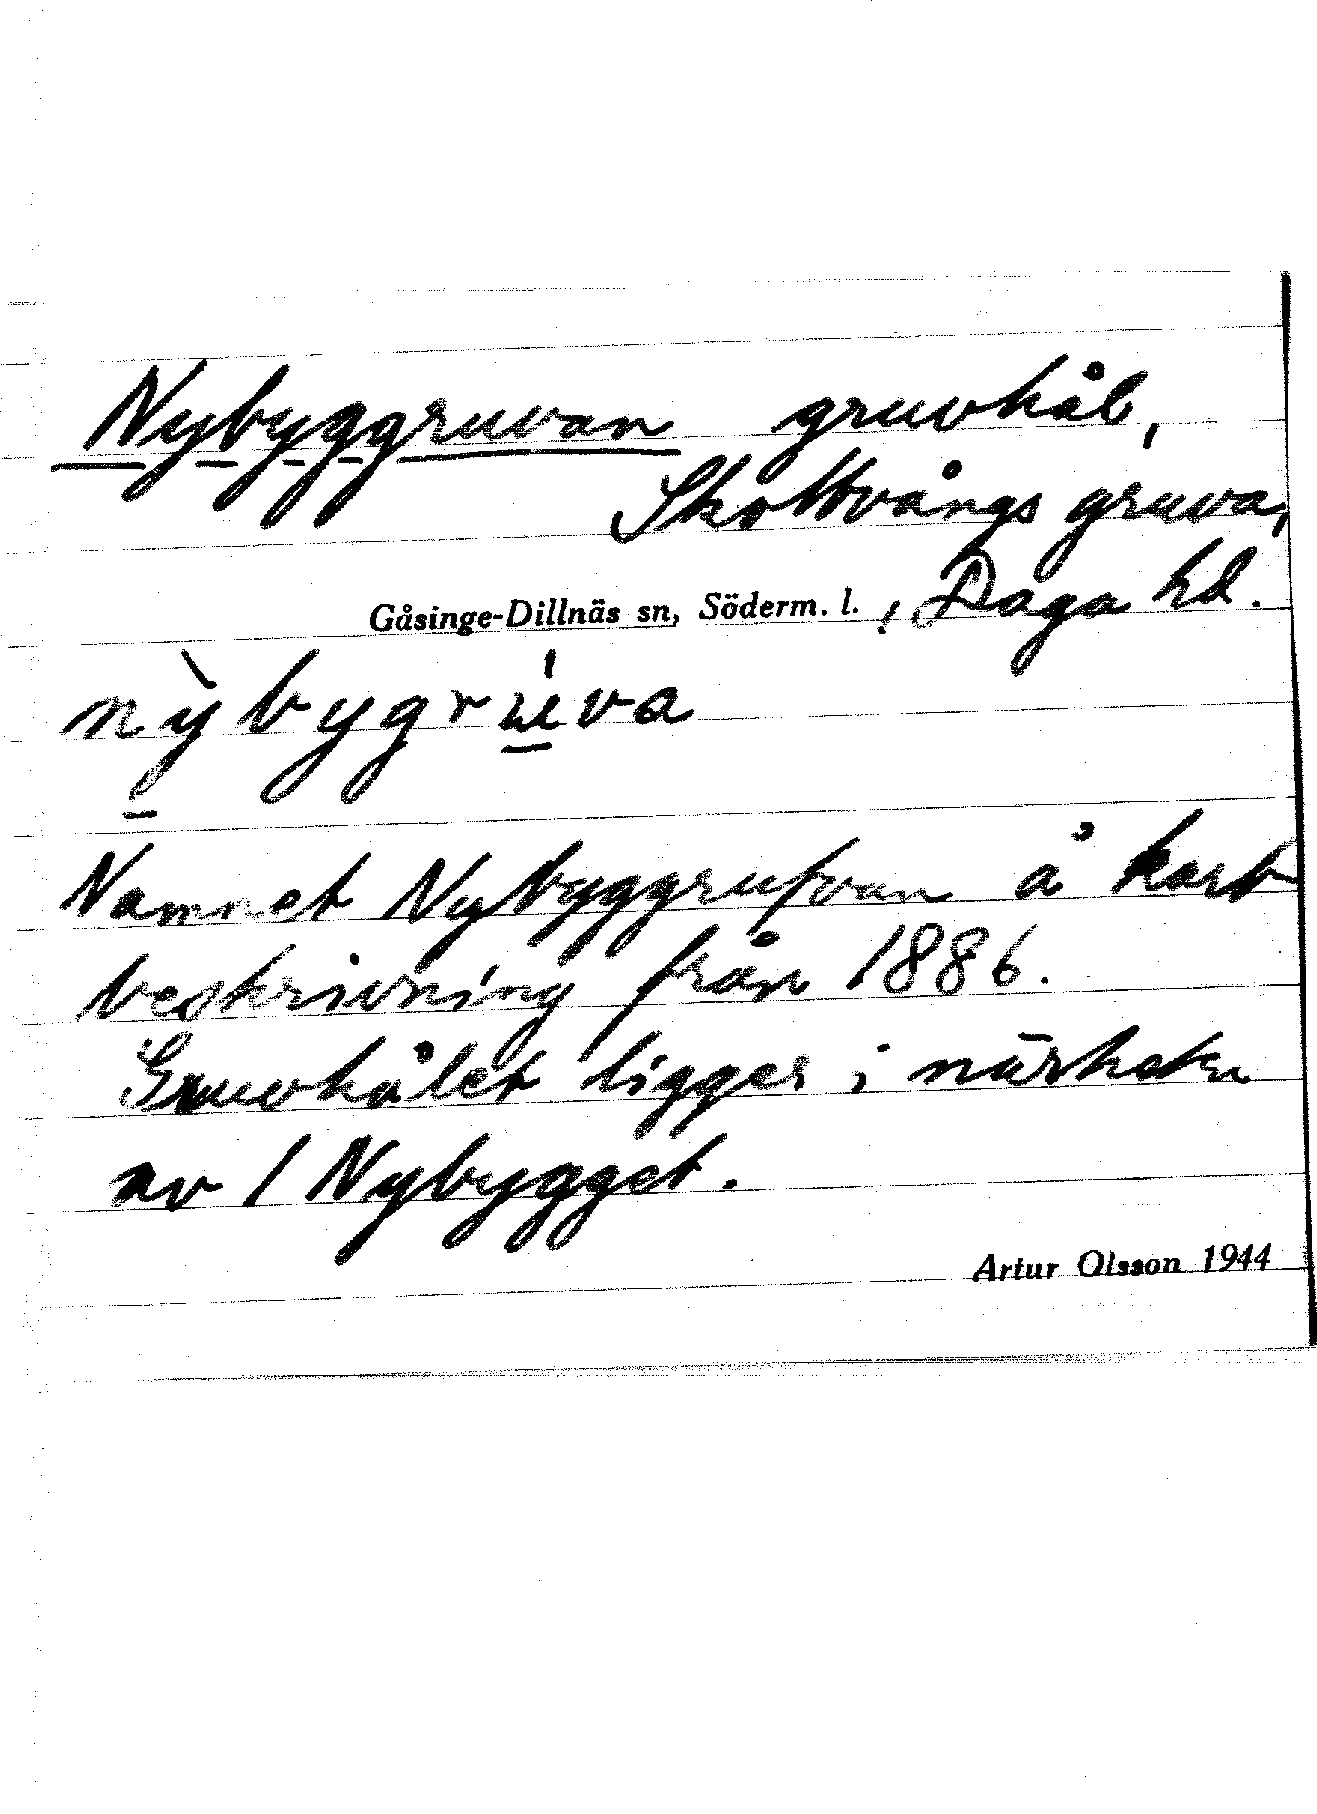 Nybyggruvan gruvhål,
Skottvångs gruva,
Gåsinge-Dillnäs sn, Söderm. l. , Daga hd.
nỳbygrúva
Namnet Nybyggrufvan å kart
beskrivning från 1886.
Gruvhålet ligger i närheten
av 1 Nybygget.
Artur Olsson 1944